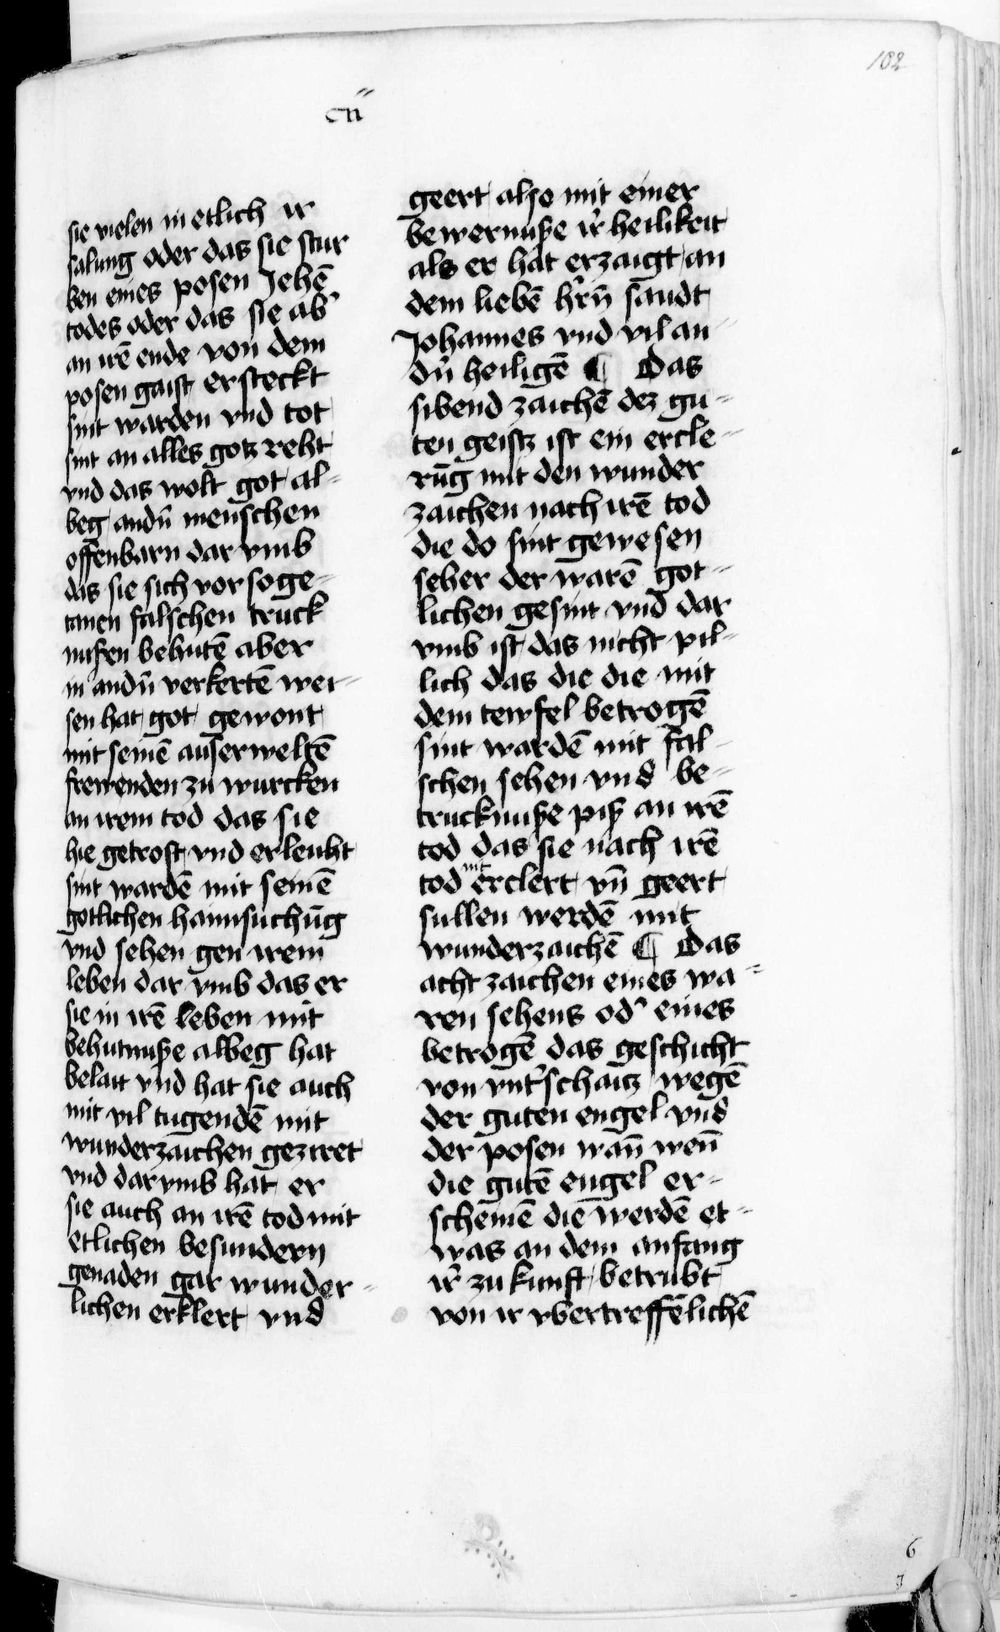 102
cii
sie vielen in etlich ir
salung oder das sie stur
ben eines posen Jehē
todes oder das sie ab᾽
an irē ende von dem
posen gaist ersteckt
sint warden vnd tot
sint an alles gotz reht
vnd das wolt got al-
beg andn̄ menschen
offenbarn dar vmb
das sie sich vor soge-
tanen falschen truck
nusen behutē aber
in andn̄ verkertē wei-
sen hat got gewont
mit seinē auserweltē
frewenden zu wurcken
an irem tod das sie
hie getrost vnd erleuht
sint wardē mit seinē
gotlichen haimsuchūg
vnd sehen gen irem
leben dar vmb das er
sie in irē leben mit
behutnuße albeg hat
belait vnd hat sie auch
mit vil tugendē mit
wunderzaichen geziret
vnd dar vmb hat er
sie auch an irē tod mit
etlichen besundern
genaden gar wunder-
lichen erklert vnd
geert also mit einer
bewernuße ir᾽ heilikeit
als er hat erzaigt an
dem liebē h᾽rn̄ sandt
Johannes vnd vil an-
dn̄ heiligē ¶ Das
sibend zaichē dez gu-
ten geistz ist ein ercle-
rūg mit den wunder
zaichen nach irē tod
die do sint gewesen
seher der warē got-
lichen gesint vnd dar
vmb ist das nicht pil-
lich das die die mit
dem tewfel betrogē
sint wardē mit fal-
schen sehen vnd be-
trucknuße piß an irē
tod das sie nach irē
tod mit erclert vn̄ geert
sullen werdē mit
wunderzaichē ¶ Das
acht zaichen eines wa-
ren sehens od᾽ eines
betrogē das geschicht
von vnt᾽schaitz wegē
der guten engel vnd
der posen wan̄ wen̄
die gutē engel er-
scheinē die werdē et-
was an dem anfang
ir᾽ zu kunft betrubt
von ir vbertreffēlichē
6